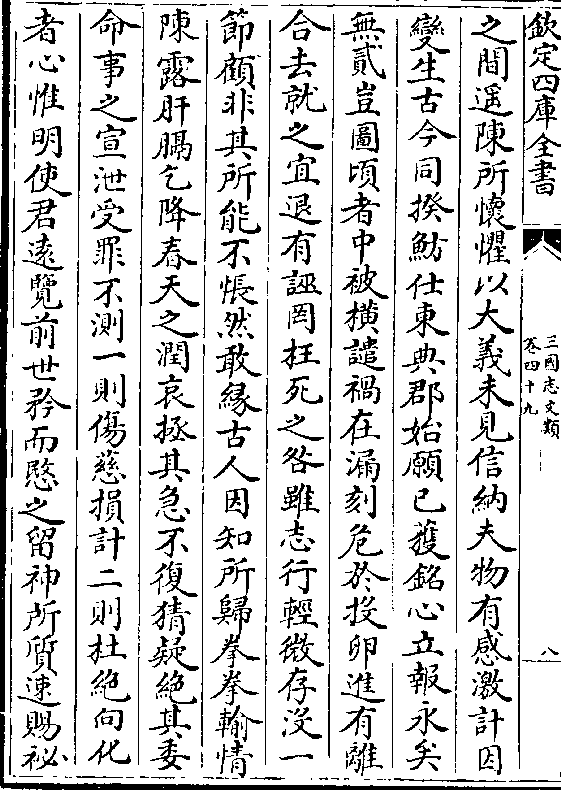 欽定四庫全書
三國志文類
卷四十九
八
之間遥陳所懷懼以大義未見信納夫物有感激計因
變生古今同揆魴仕東典郡始願已獲銘心立報永矣
無貳豈圖頃者中被橫譴禍在漏刻危於投卵進有離
合去就之宜退有誣罔枉死之咎雖志行輕微存沒一
節顧非其所能不悵然敢緣古人因知所歸拳拳輸情
陳露肝膈乞降春天之潤哀拯其急不復猜疑絶其委
命事之宣泄受罪不測一則傷慈損計二則杜絶向化
者心惟明使君遠覽前世矜而愍之留神所質速賜祕